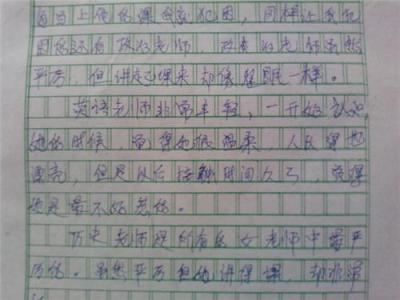 每当上他的课会家犯困，同样让我犯
困的还有政治老师，政治老师虽然
平方，但讲起课来却像催眠一样。
英语老师非常年轻，一开始认识
她的时候，觉得她很温柔，人长得也
漂亮，但是以后接触时间久了，觉得
她是最不好惹的。
历史老师是所有的女老师中最严
厉的。虽然平方但她讲得课，却非常